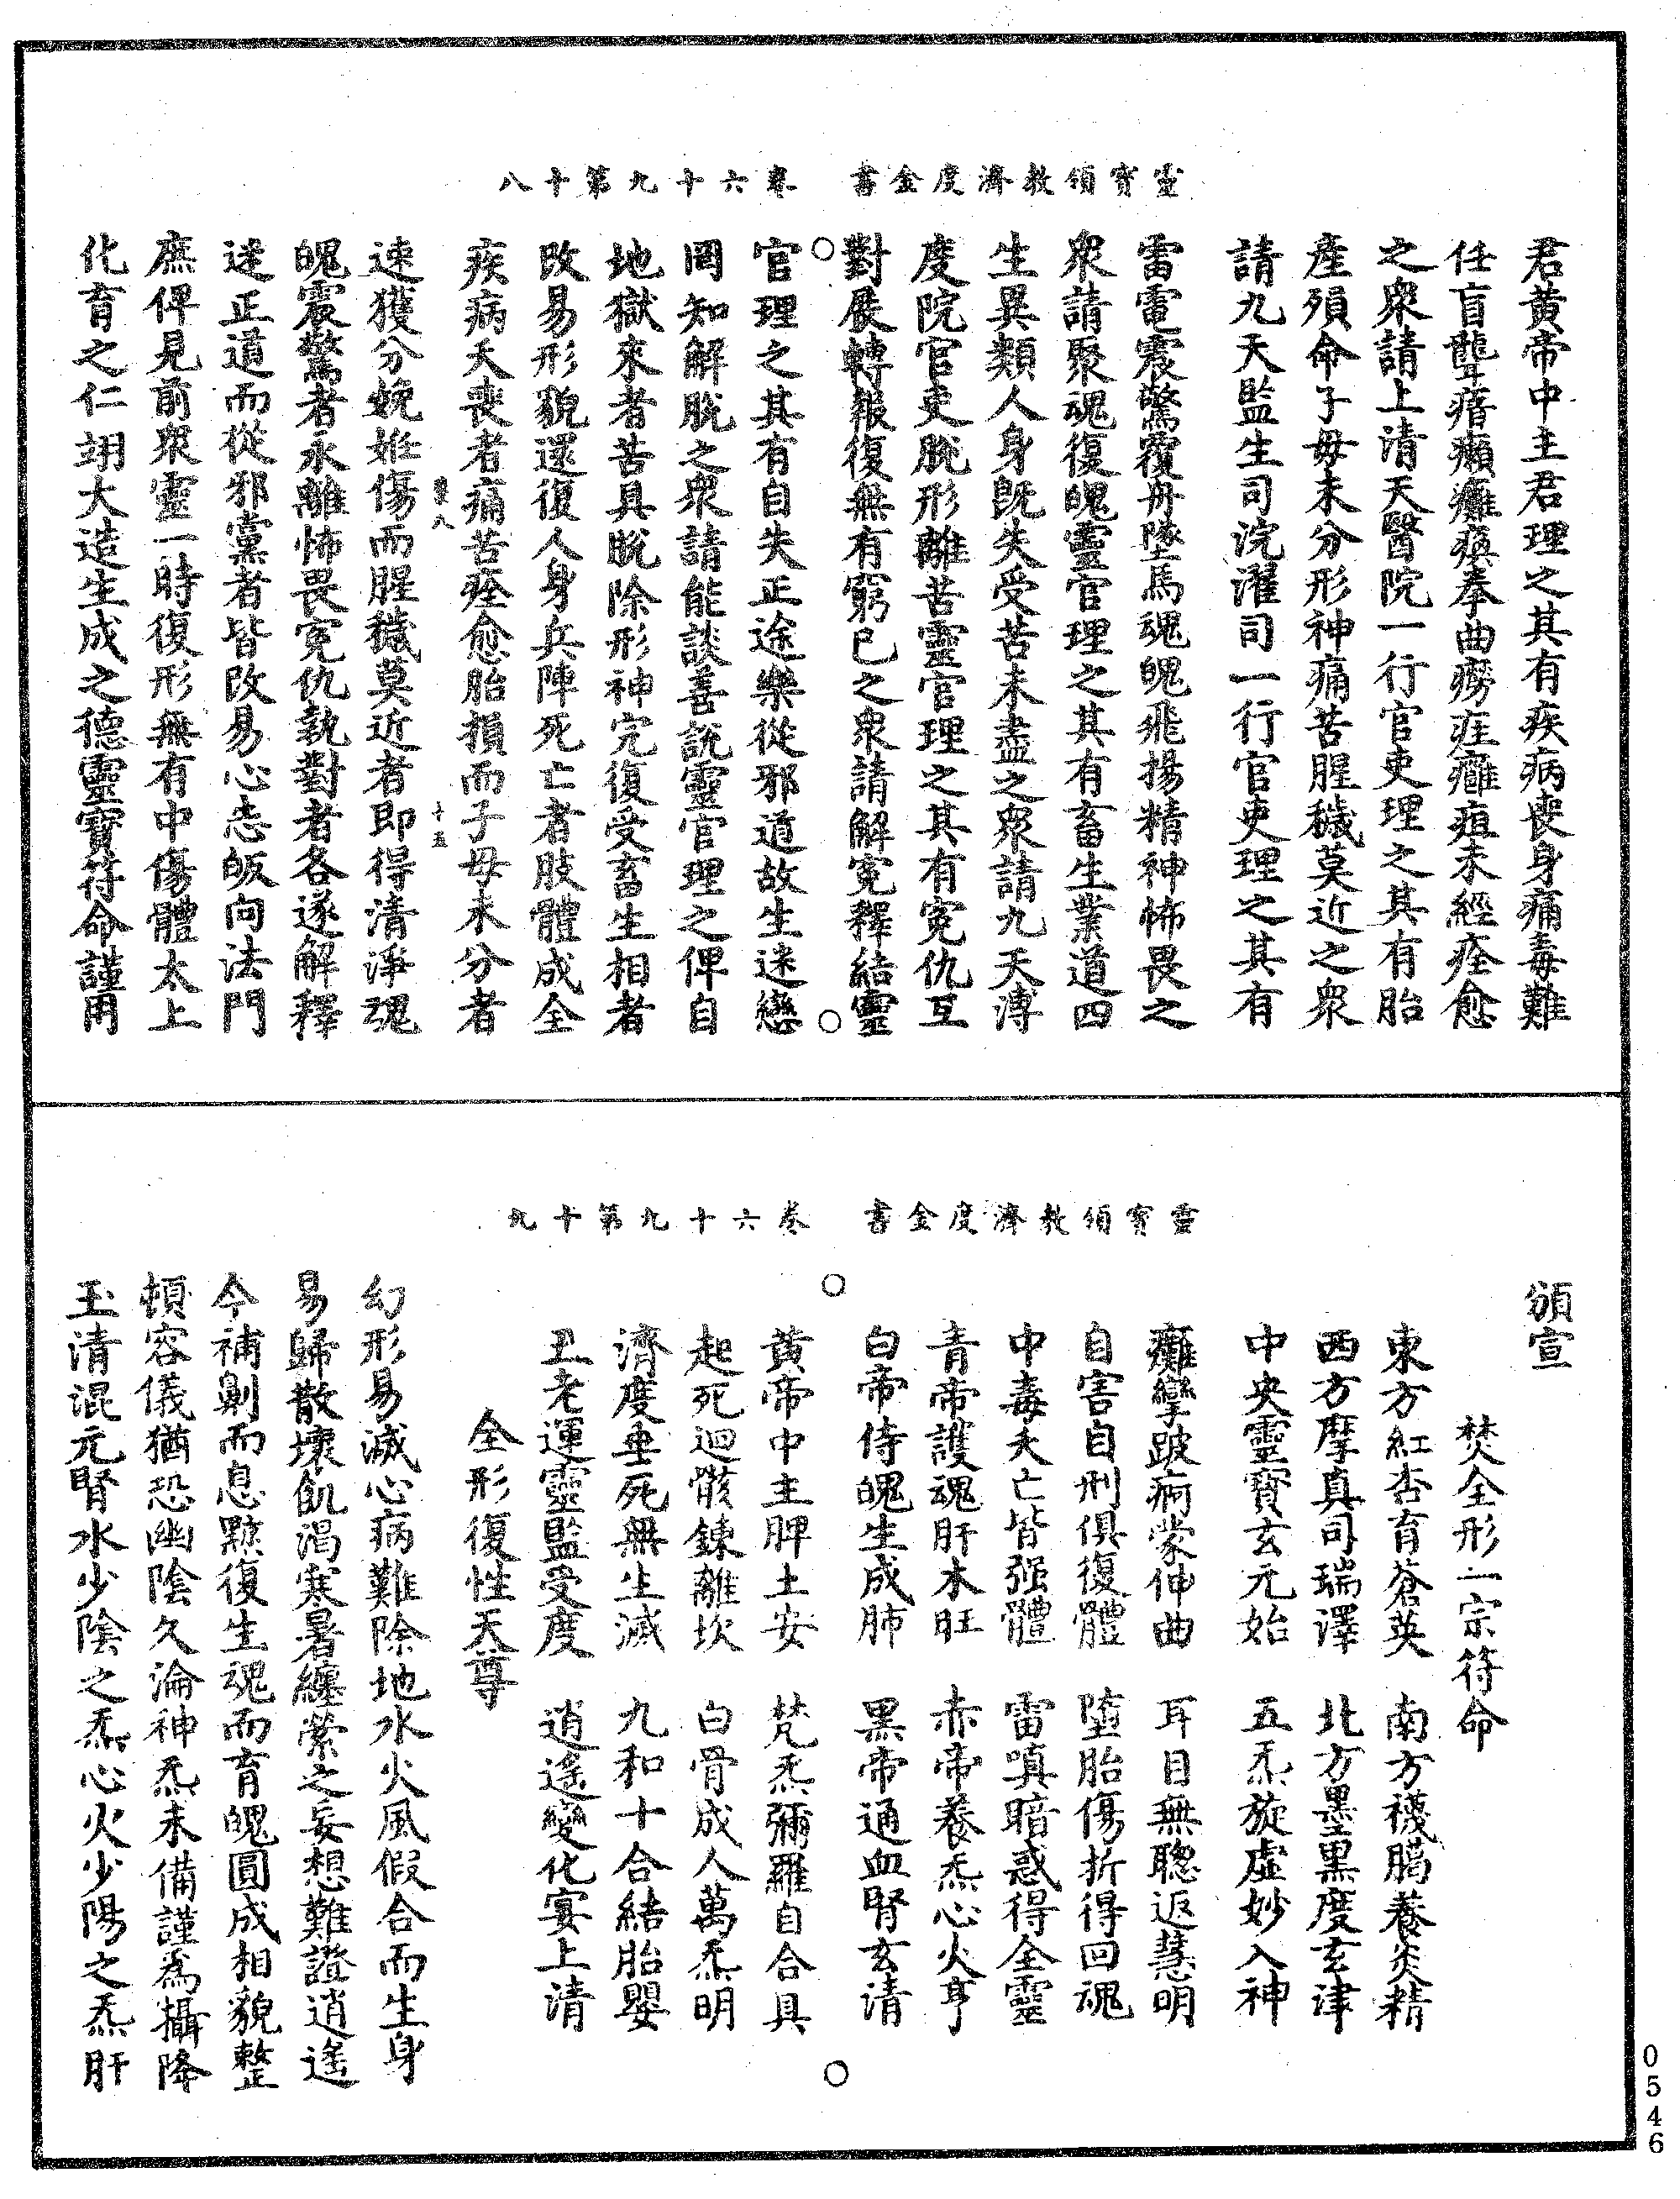 靈寶領教濟度金書　卷六十九第十八
君黃帝中主君理之其有疾病喪身痛毒難
任盲聾瘖癩癱瘓拳曲癆疰癰疽未經痊愈
之衆請上清天醫院一行官吏理之其有胎
產殞命子母未分形神痛苦腥穢莫近之衆
請九天監生司浣濯司一行官吏理之其有
雷電震驚覆舟墜馬魂魄飛揚精神怖畏之
衆請聚魂復魄靈官理之其有畜生業道四
生異類人身旣失受苦未盡之衆請九天溥
度院官吏脫形離苦靈官理之其有寃仇互
對展轉報復無有窮已之衆請解寃釋結靈
官理之其有自失正途樂從邪道故生迷戀
罔知解脫之衆請能談善說靈官理之俾自
地獄來者苦具脫除形神完復受畜生相者
改易形貌還復人身兵陣死亡者肢體成全
疾病夭喪者痛苦痊愈胎損而子母未分者
十五
速獲分娩姙傷而腥穢莫近者即得清淨魂
魄震驚者永離怖畏寃仇執對者各遂解釋
迷正道而從邪黨者皆改易心志皈向法門
庶俾見前衆靈一時復形無有中傷體太上
化育之仁翊大造生成之德靈寶符命謹用
靈寶領教濟度金書　卷六十九第十九
頒宣
焚全形一宗符命
東方紅杏育蒼英　南方襪臈養炎精
西方摩真司瑞澤　北方墨黑度玄津
中央靈寶玄元始　五炁旋虛妙入神
癱攣跛痾蒙伸曲　耳目無聦返慧明
自害自刑俱復體　墮胎傷折得回魂
中毒夭亡皆强體　雷嗔暗惑得全靈
青帝護魂肝木旺　赤帝養炁心火亨
白帝侍魄生成肺　黑帝通血腎玄清
黃帝中主脾土安　梵炁彌羅自合具
起死迴骸鍊離坎　白骨成人萬炁明
濟度垂死無生滅　九和十合結胎嬰
丑老運靈監受度　逍遙變化宴上清
全形復性天尊
幻形易滅心病難除地水火風假合而生身
易歸散壞飢渴寒暑纏縈之妄想難證逍遙
今補劓而息黥復生魂而育魄圓成相貌整
頓容儀猶恐幽陰久淪神炁未備謹為攝降
玉清混元腎水少陰之炁心火少陽之炁肝
0546